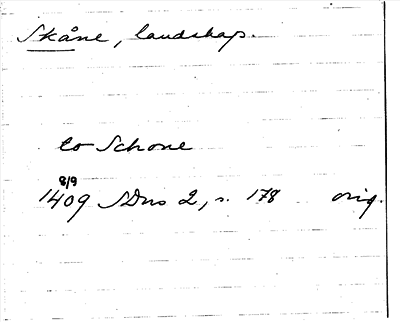 Skåne, landskap.
to Schone
8/9
1409 SDns 2, s. 178 orig.